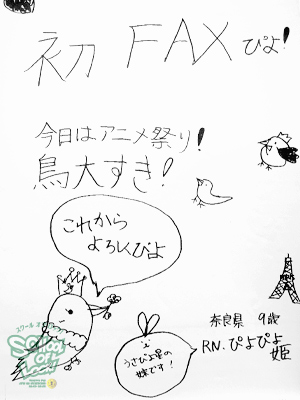 初 FAX ぴよ!
今日はアニメ祭り!
鳥大すき!
これから
よろしくぴよ
奈良県 9歳
RN.ぴよぴよ
姫
うさぴよ星の
妹です!